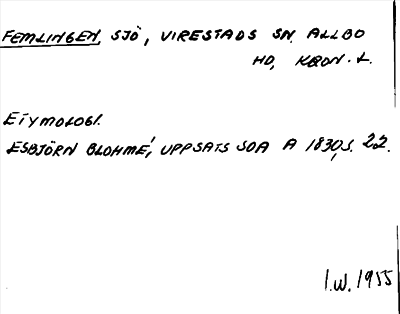 FEMLINGEN, SJÖ, VIRESTADS SN. ALLBO
HD, KRON. L.
ETYMOLOGI.
ESBJÖRN BLOHMÉ, UPPSATS SOA A 1830, S. 22.
I.W. 1955